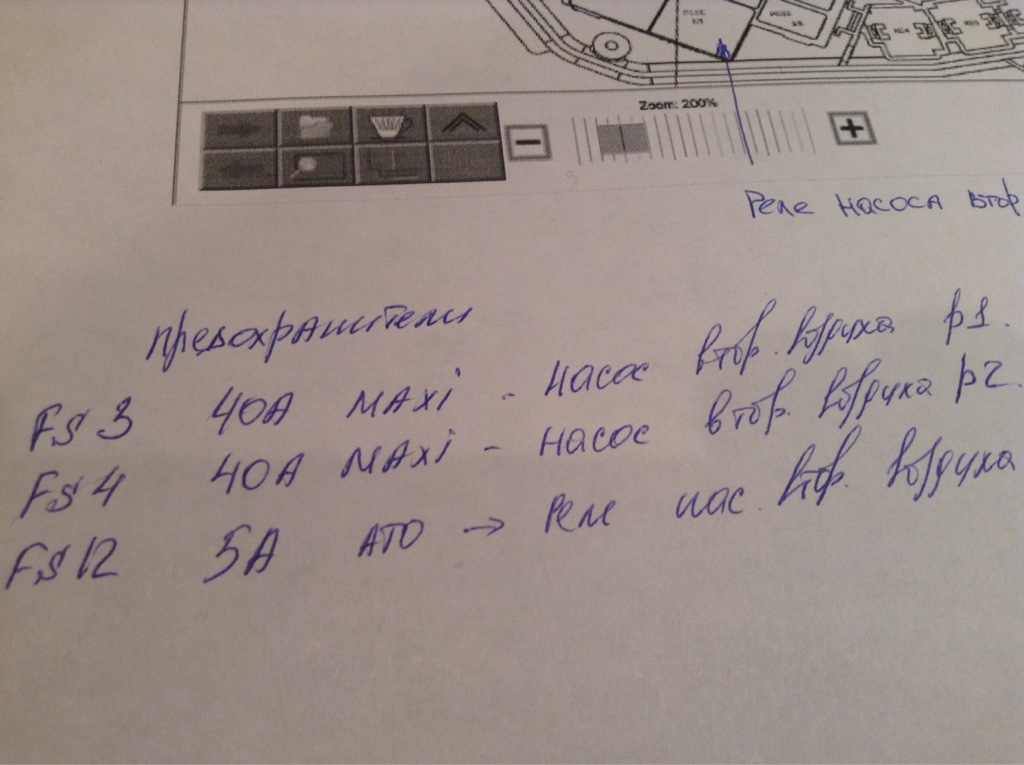 Zoom: 200%
Реле насоса втор
предохранители
FS 3 40А MAXi - насос втор. воздуха р1.
FS 4 40А MAXi - насос втор. воздуха р2.
FS 12 5А АТО → Реле нас. втор. воздуха